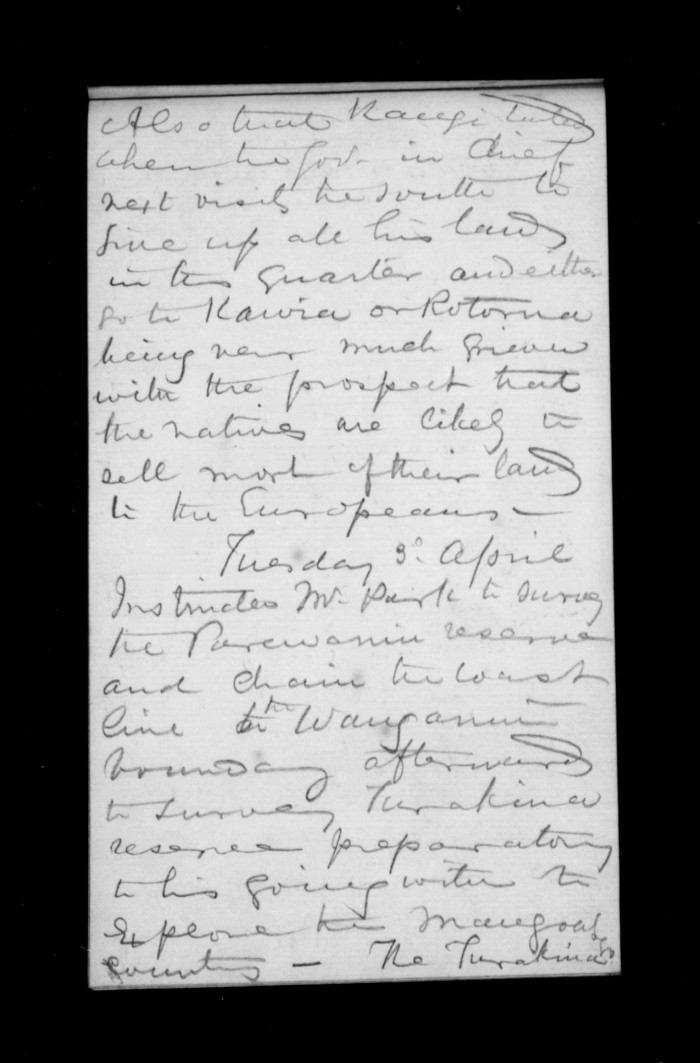 Also that Rangi
when the Gov. in Chief
next visits the south to
give up all his land
in this quarter and either
go to Kawia or Rotorua
being very much grieved
with the prospect that
the natives are likely to
sell most of their land
to the Europeans —
Tuesday 3d. April
Instructed Mr. Park to survey
the Parewanui reserve
and chain the coast
line to the Wanganui
boundary afterwards
to survey Turakina
reserve preparatory
to his going with to
explore the
country — The Turakina